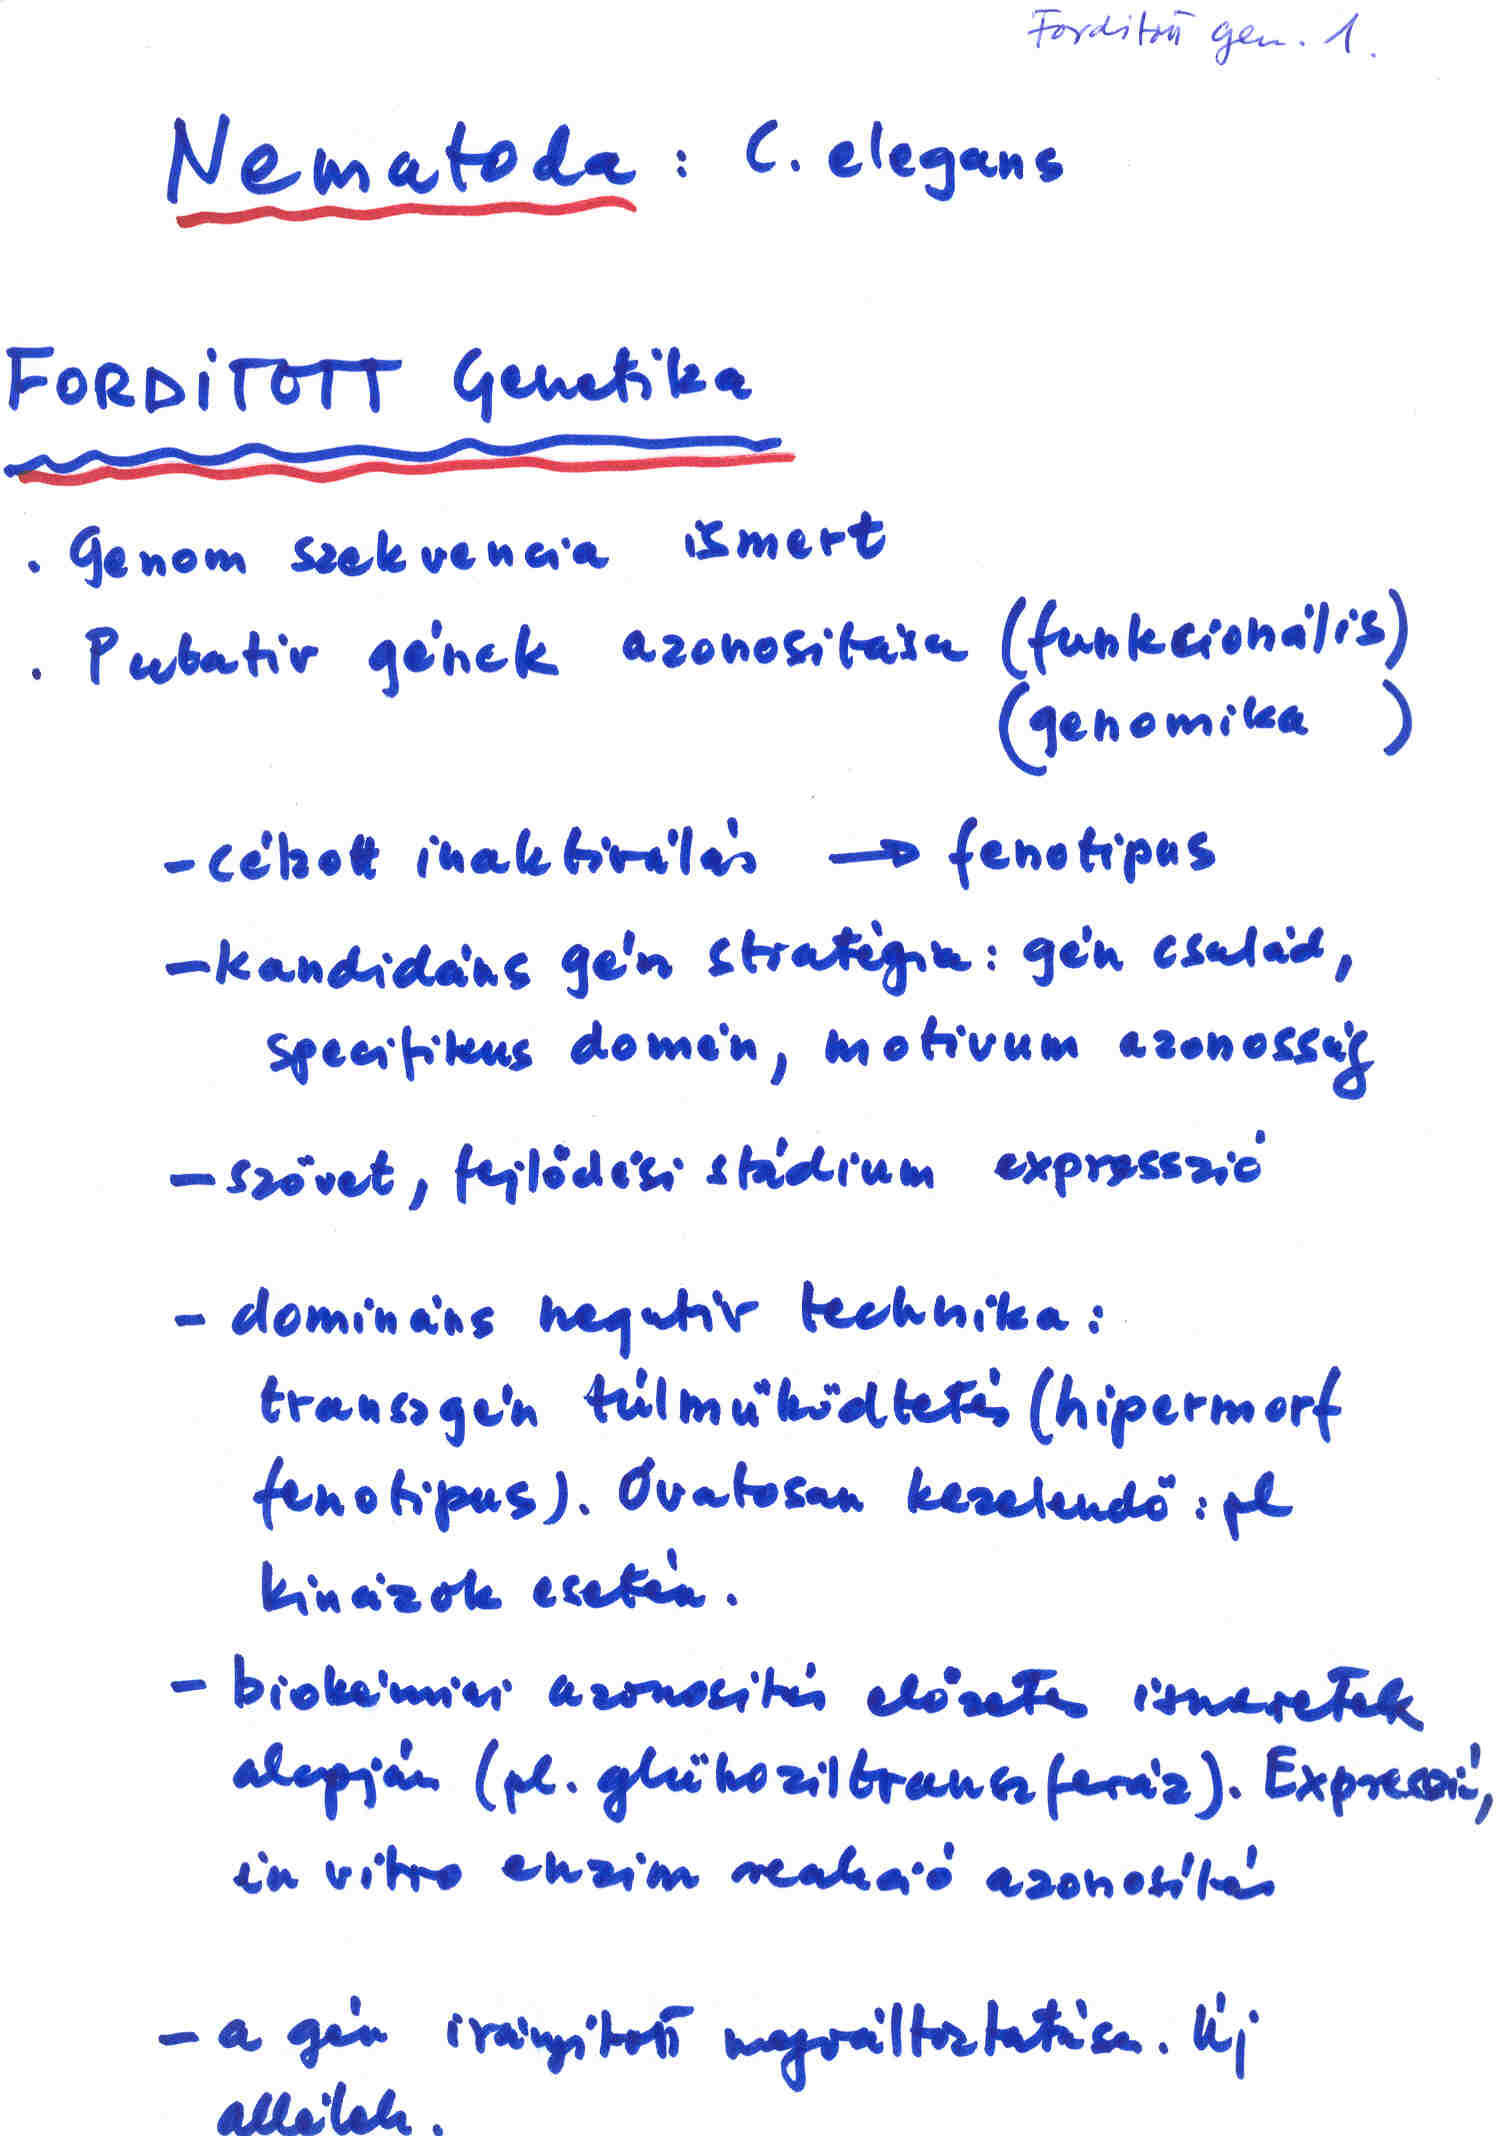 Fordított gen. 1.
Nematoda: C. elegans
FORDÍTOTT Genetika
. Genom szekvencia ismert
. Putatív gének azonosítása (funkcionális)
(genomika )
- célzott inaktiválás → fenotípus
- kandidáns gén stratégia: gén család,
specifikus domén, motivum azonosság
- szövet, fejlődési stádium expresszió
- domináns negatív technika:
transzgén túlműködtetés (hipermorf
fenotipus). Óvatosan kezelendő: pl
kinázok esetén.
- biokémiai azonosítás előzetes ismeretek
alapján (pl. glükoziltranszferáz). Expresszió,
in vitro enzim reakció azonosítás
- a gén irányított megváltoztatása. Új
allélek.